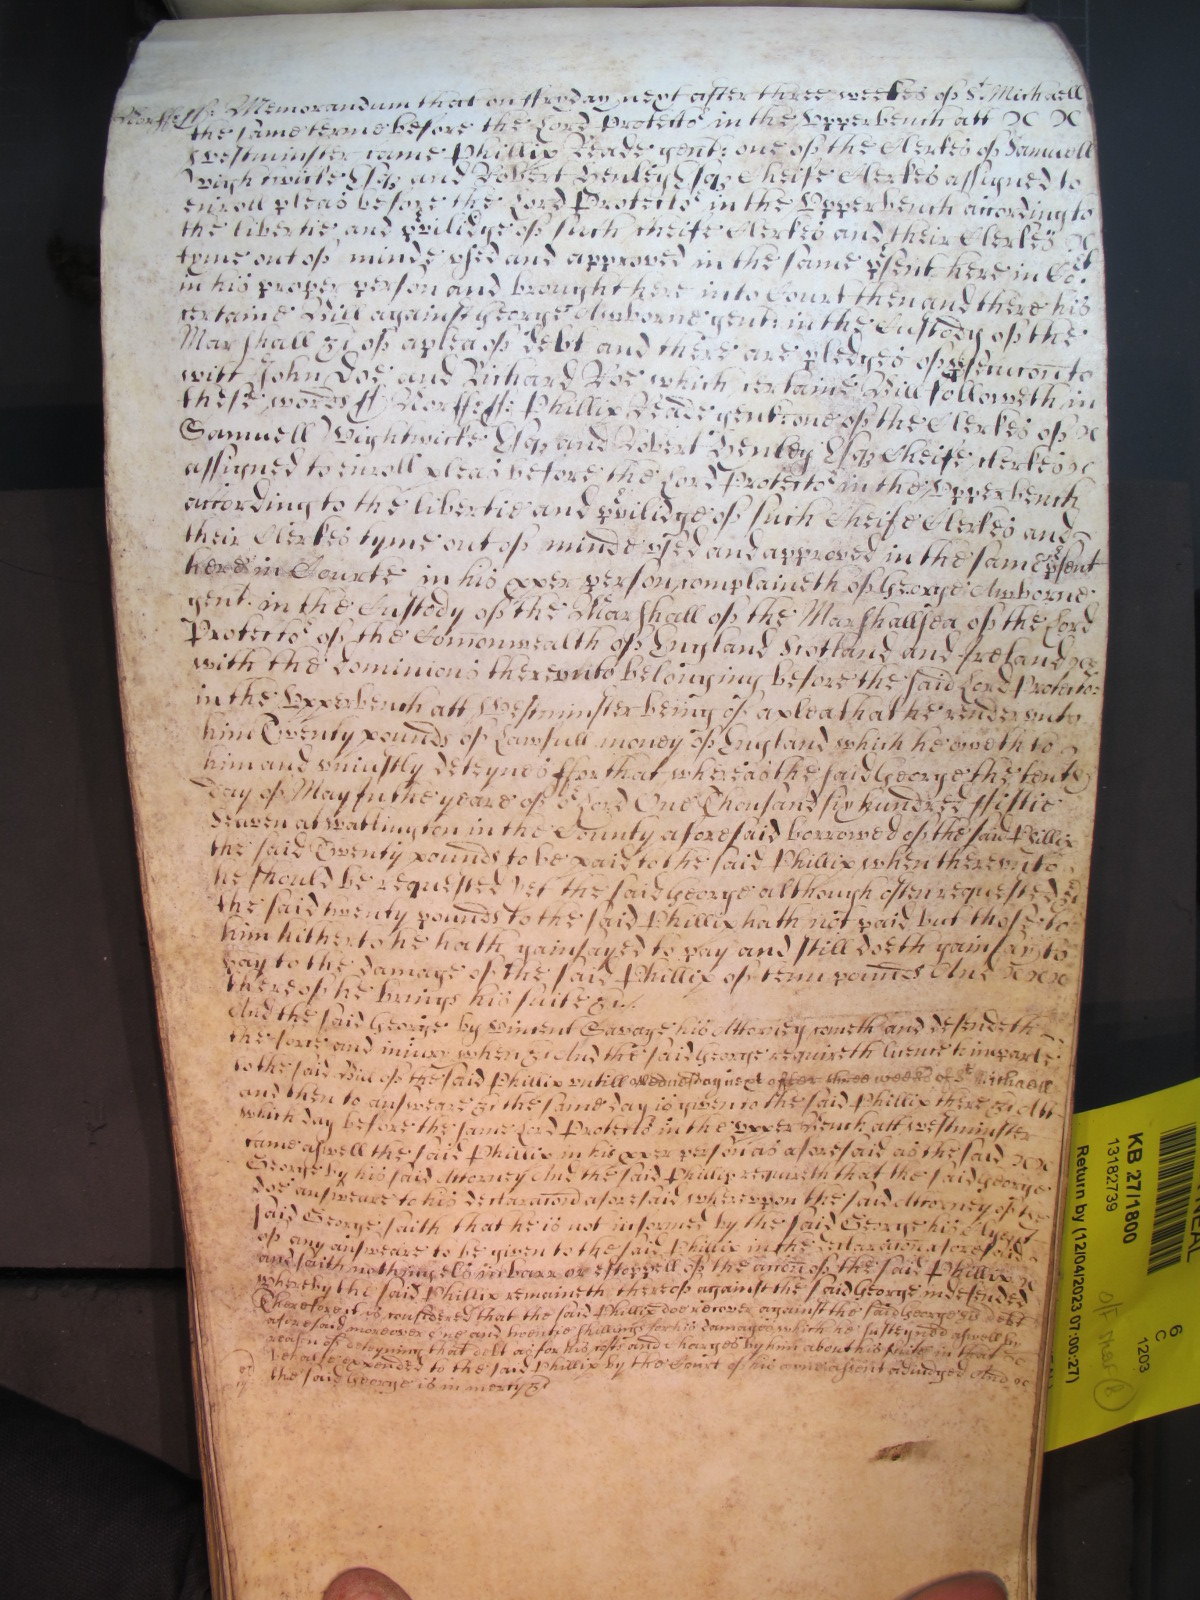 Norff ss Memorandum that on ffryday next after three weekes of St Michaell
the same terme before the Lord Protector in the Upperbench att
Westminster came Phillix Reade gent: one of the Clerkes of Samuell
Wightwicke Esqr and Robert Henley Esqr Cheife Clerkes assigned to
enroll pleas before the Lord Protector in the Upper bench according to
the libertie and privilidge of such cheife Clerkes and their Clerkes
tyme out of minde used and approved in the same present here in Cort
in his proper person and brought here into Court then and there his
certaine Bill against George Awborne gent: in the Custody of the
Marshall &c of a plea of debt and there are pledges of prosecucon to
witt John Doe and Richard Roe which certaine Bill followeth in
these words ss Norff ss Phillix Reade gent: one of the Clerkes of
Samuell Wightwicke Esqr and Robert Henley Esqr Cheife Clerkes
assigned to enroll pleas before the Lord Protector in the Upper bench
according to the libertie and privilidge of such Cheife Clerkes and
their Clerkes tyme out of minde used and approved in the same present
here in Courte in his pper person complaineth of George Awborne
gent. in the Custody of the Marshall of the Marshallsea of the Lord
Protector of the Comonwealth of England Scotland and Ireland
with the dominions thereunto belonging before the said Lord Protector
in the Upperbench att Westminster being of a plea that he render unto
him Twenty pounds of Lawfull money of England which he oweth to
him and uniustly deteynes ffor that whereas the said George the tenth
day of May In the yeare of or Lord One Thousand six hundred ffiftie
Seaven at Watlington in the County aforesaid borrowed of the said Phillix
the said Twenty pounds to be paid to the said Phillix when thereunto
he should be requested Yet the said George although often requested &c
the said twenty pounds to the said Phillix hath not paid but those to
him hitherto he hath gainsayed to pay and still doeth gainsay to
pay to the damage of the said Phillix of tenn pounds And
thereof he brings his suite &c.
And the said George by Vincent Savage his Attorney cometh and defendeth
the force and iniury when &c And the said George requireth licence to imparle
to the said Bill of the said Phillix untill Wednesday next after three weekes of St Michaell
and then to answeare &c the same day is given to the said Phillix there &c Att
which day before the same Lord Protector in the upper bench att Westminster
came aswell the said Phillix in his pper person as aforesaid as the said
George by his said Attorney And the said Phillix requireth that the said George
doe answeare to his declaracon aforesaid whereupon the said Attorney of the
said George saith that he is not informed by the said George his Clyent
of any answeare to be given to the said Phillix in the declaracon aforesaid
and saith nothing els in barr or estoppell of the accon of the said Phillix
whereby the said Phillix remaineth thereof against the said George undefended
Therefore it is considered that the said Phillix doe recover against the said George his debt
aforesaid moreover one and twentie shillings for his damages which he susteyned aswell by
reason of deteyning that debt as for his costs and charges by him about his suite in that
behalfe expended to the said Phillix by the Court of his owne assent adiudged And
the said George is in mercy &c
KB 27/1800
13182739
Return by (12/04/2023 07:00:27)
6
C
1203